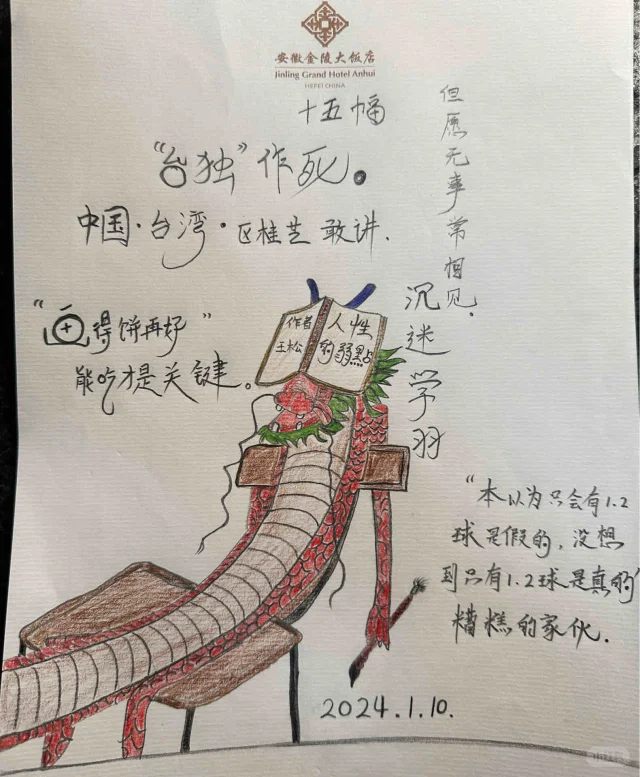 安徽金陵大饭店
Jinling Grand Hotel Anhui
HEFEI CHINA
十五幅
"台独"作死。
中国·台湾·区桂芝敢讲.
但愿无事常相见.
作者
王松
人性
的弱點
沉迷学习
"画得饼再好"
能吃才是关键。
"本以为只会有1.2
球是假的,没想
到只有1.2球是真的"
糟糕的家伙.
2024.1.10.
小红书